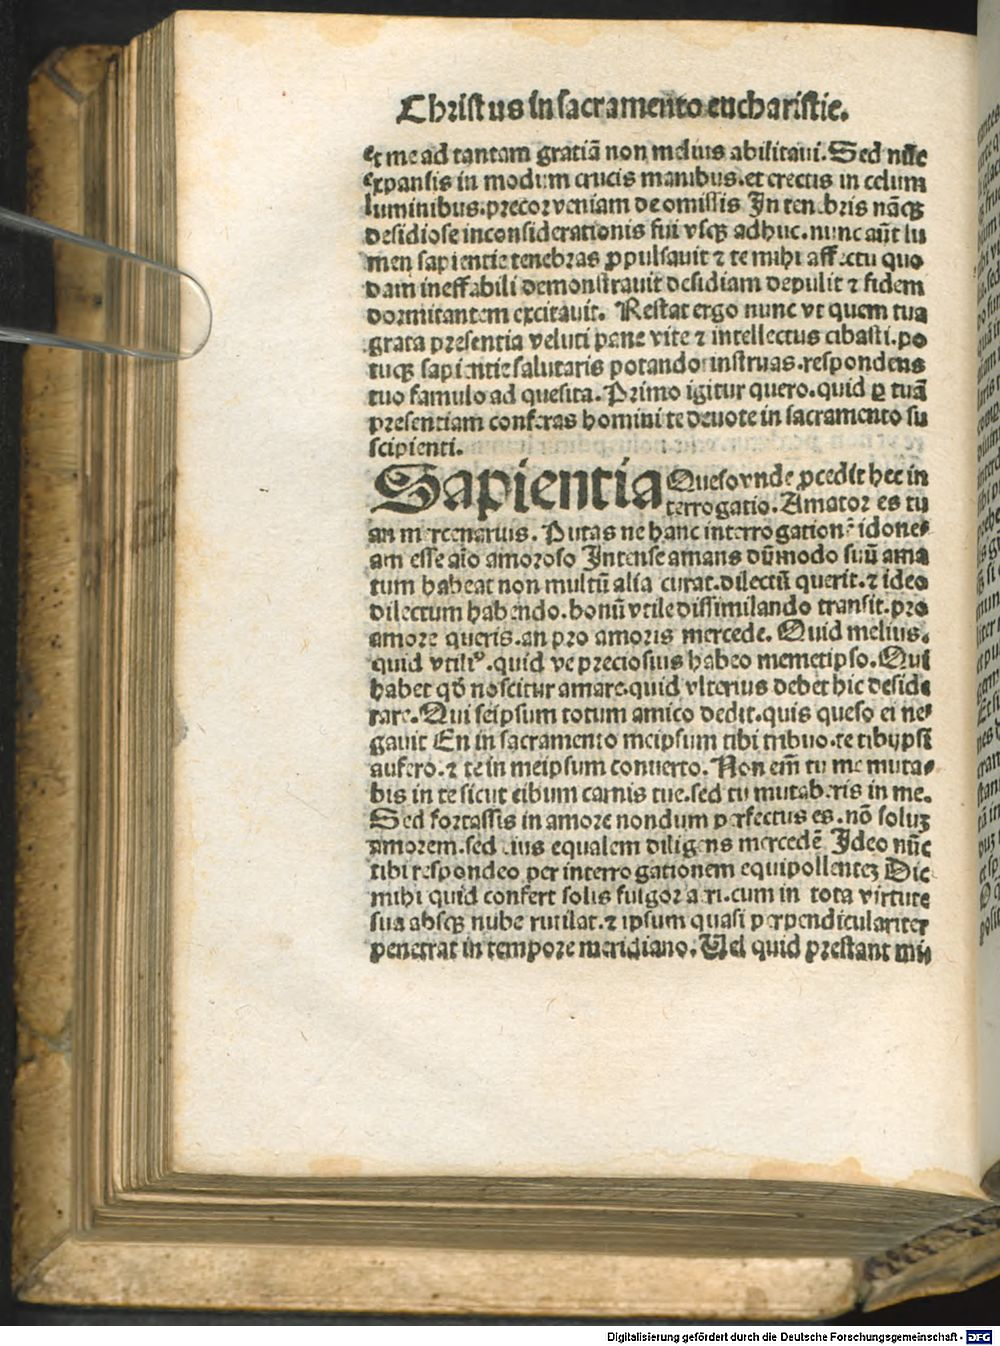 Christus in sacramento eucharistie.
et me ad tantam gratiā non melius abilitaui. Sed nūc
expansis in modum crucis manibus. et erectis in celum
luminibus. precor veniam de omissis In tenebris nāqꝫ
desidiose inconsiderationis fui vsqꝫ adhuc. nunc aūt lu
men sapientie tenebras ꝓpulsauit ⁊ te mihi affectu quo
dam ineffabili demonstrauit desidiam depulit ⁊ fidem
dormitantem excitauit. Restat ergo nunc vt quem tua
grata presentia veluti pane vite ⁊ intellectus cibasti. po
tuqꝫ sapientie salutaris potando instruas. respondens
tuo famulo ad quesita. Primo igitur quero. quid ꝑ tuā
presentiam conferas homini te deuote in sacramento su
scipienti.
Sapientia Queso vnde ꝓcedit hec in
terrogatio. Amator es tu
an mercenarius. Putas ne hanc interrogationē idone⸗
am esse aīo amoroso Intense amans dūmodo suū ama
tum habeat non multū alia curat. dilectū querit. ⁊ ideo
dilectum habendo. bonū vtile dissimilando transit. pro
amore queris. an pro amoris mercede. Quid melius.
quid vtiliꝰ. quid ve preciosius habeo memetipso. Qui
habet qđ noscitur amare. quid vlterius debet hic deside
rare. Qui seipsum totum amico dedit. quis queso ei ne⸗
gauit En in sacramento meipsum tibi tribuo. te tibijpsi
aufero. ⁊ te in meipsum conuerto. Non em̄ tu me muta⸗
bis in te sicut cibum carnis tue. sed tu mutaberis in me.
Sed fortassis in amore nondum perfectus es. nō soluꝫ
amorem. sed eius equalem diligens mercedē Ideo nūc
tibi respondeo per interrogationem equipollenteꝫ Dic
mihi quid confert solis fulgor aeri. cum in tota virtute
sua absqꝫ nube rutilat. ⁊ ipsum quasi perpendiculariter
penetrat in tempore meridiano. Uel quid prestant mi⸗
Digitalisierung gefördert durch die Deutsche Forschungsgemeinschaft - DFG